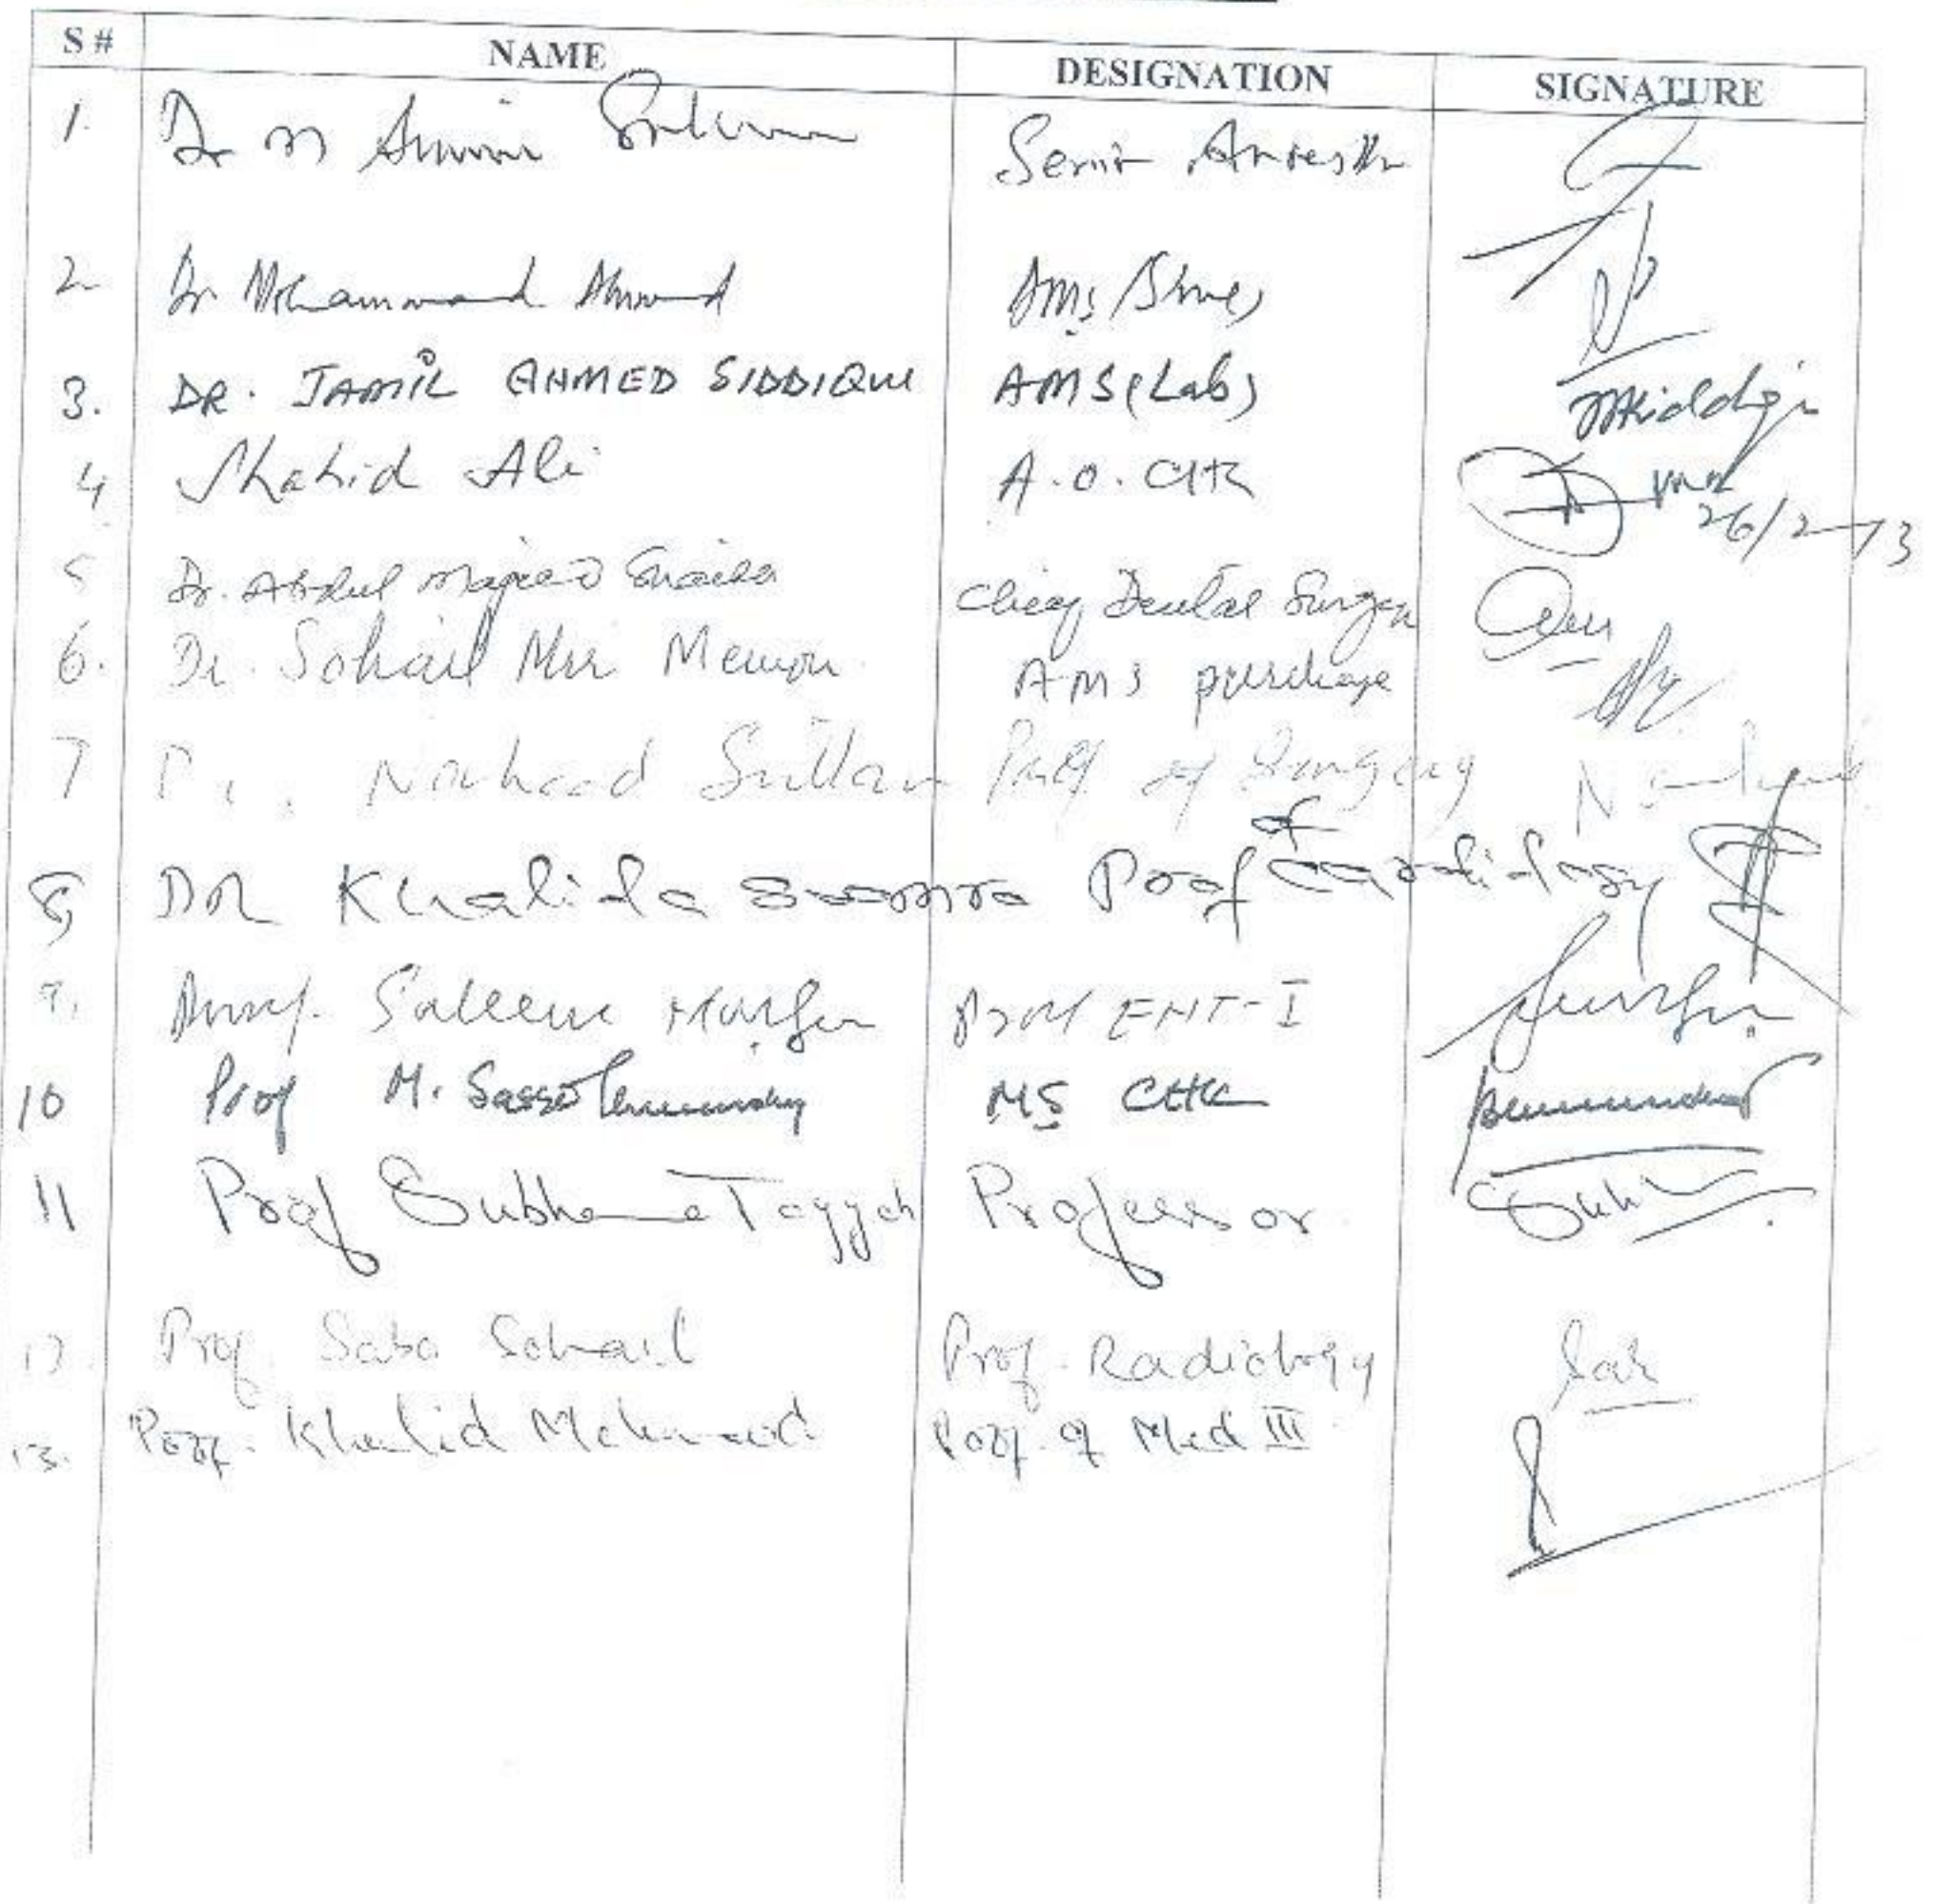 S # NAME DESIGNATION SIGNATURE
1. Dr M
2 Dr Mohammad Ahmed AMS
3. DR. JAMIL AHMED SIDDIQUI AMS (Lab)
4 Shahid Ali A.O. CHK 26/2-13
5 Dr. Abdul Majeed Chief Dental Surgeon
6. Dr. Sohail Mir Memon AMS purchase
7 Dr. Nousheed Sultan Prof of Surgery
8 DR Khalida Soomro Prof of Cardiology
9. Prof. Saleem Prof ENT-I
10 Prof M. MS CHK
11 Prof Subhana Tayyab Professor
12. Prof. Saba Sohail Prof. Radiology
13. Prof. Khalid Mehmood Prof. of Med III